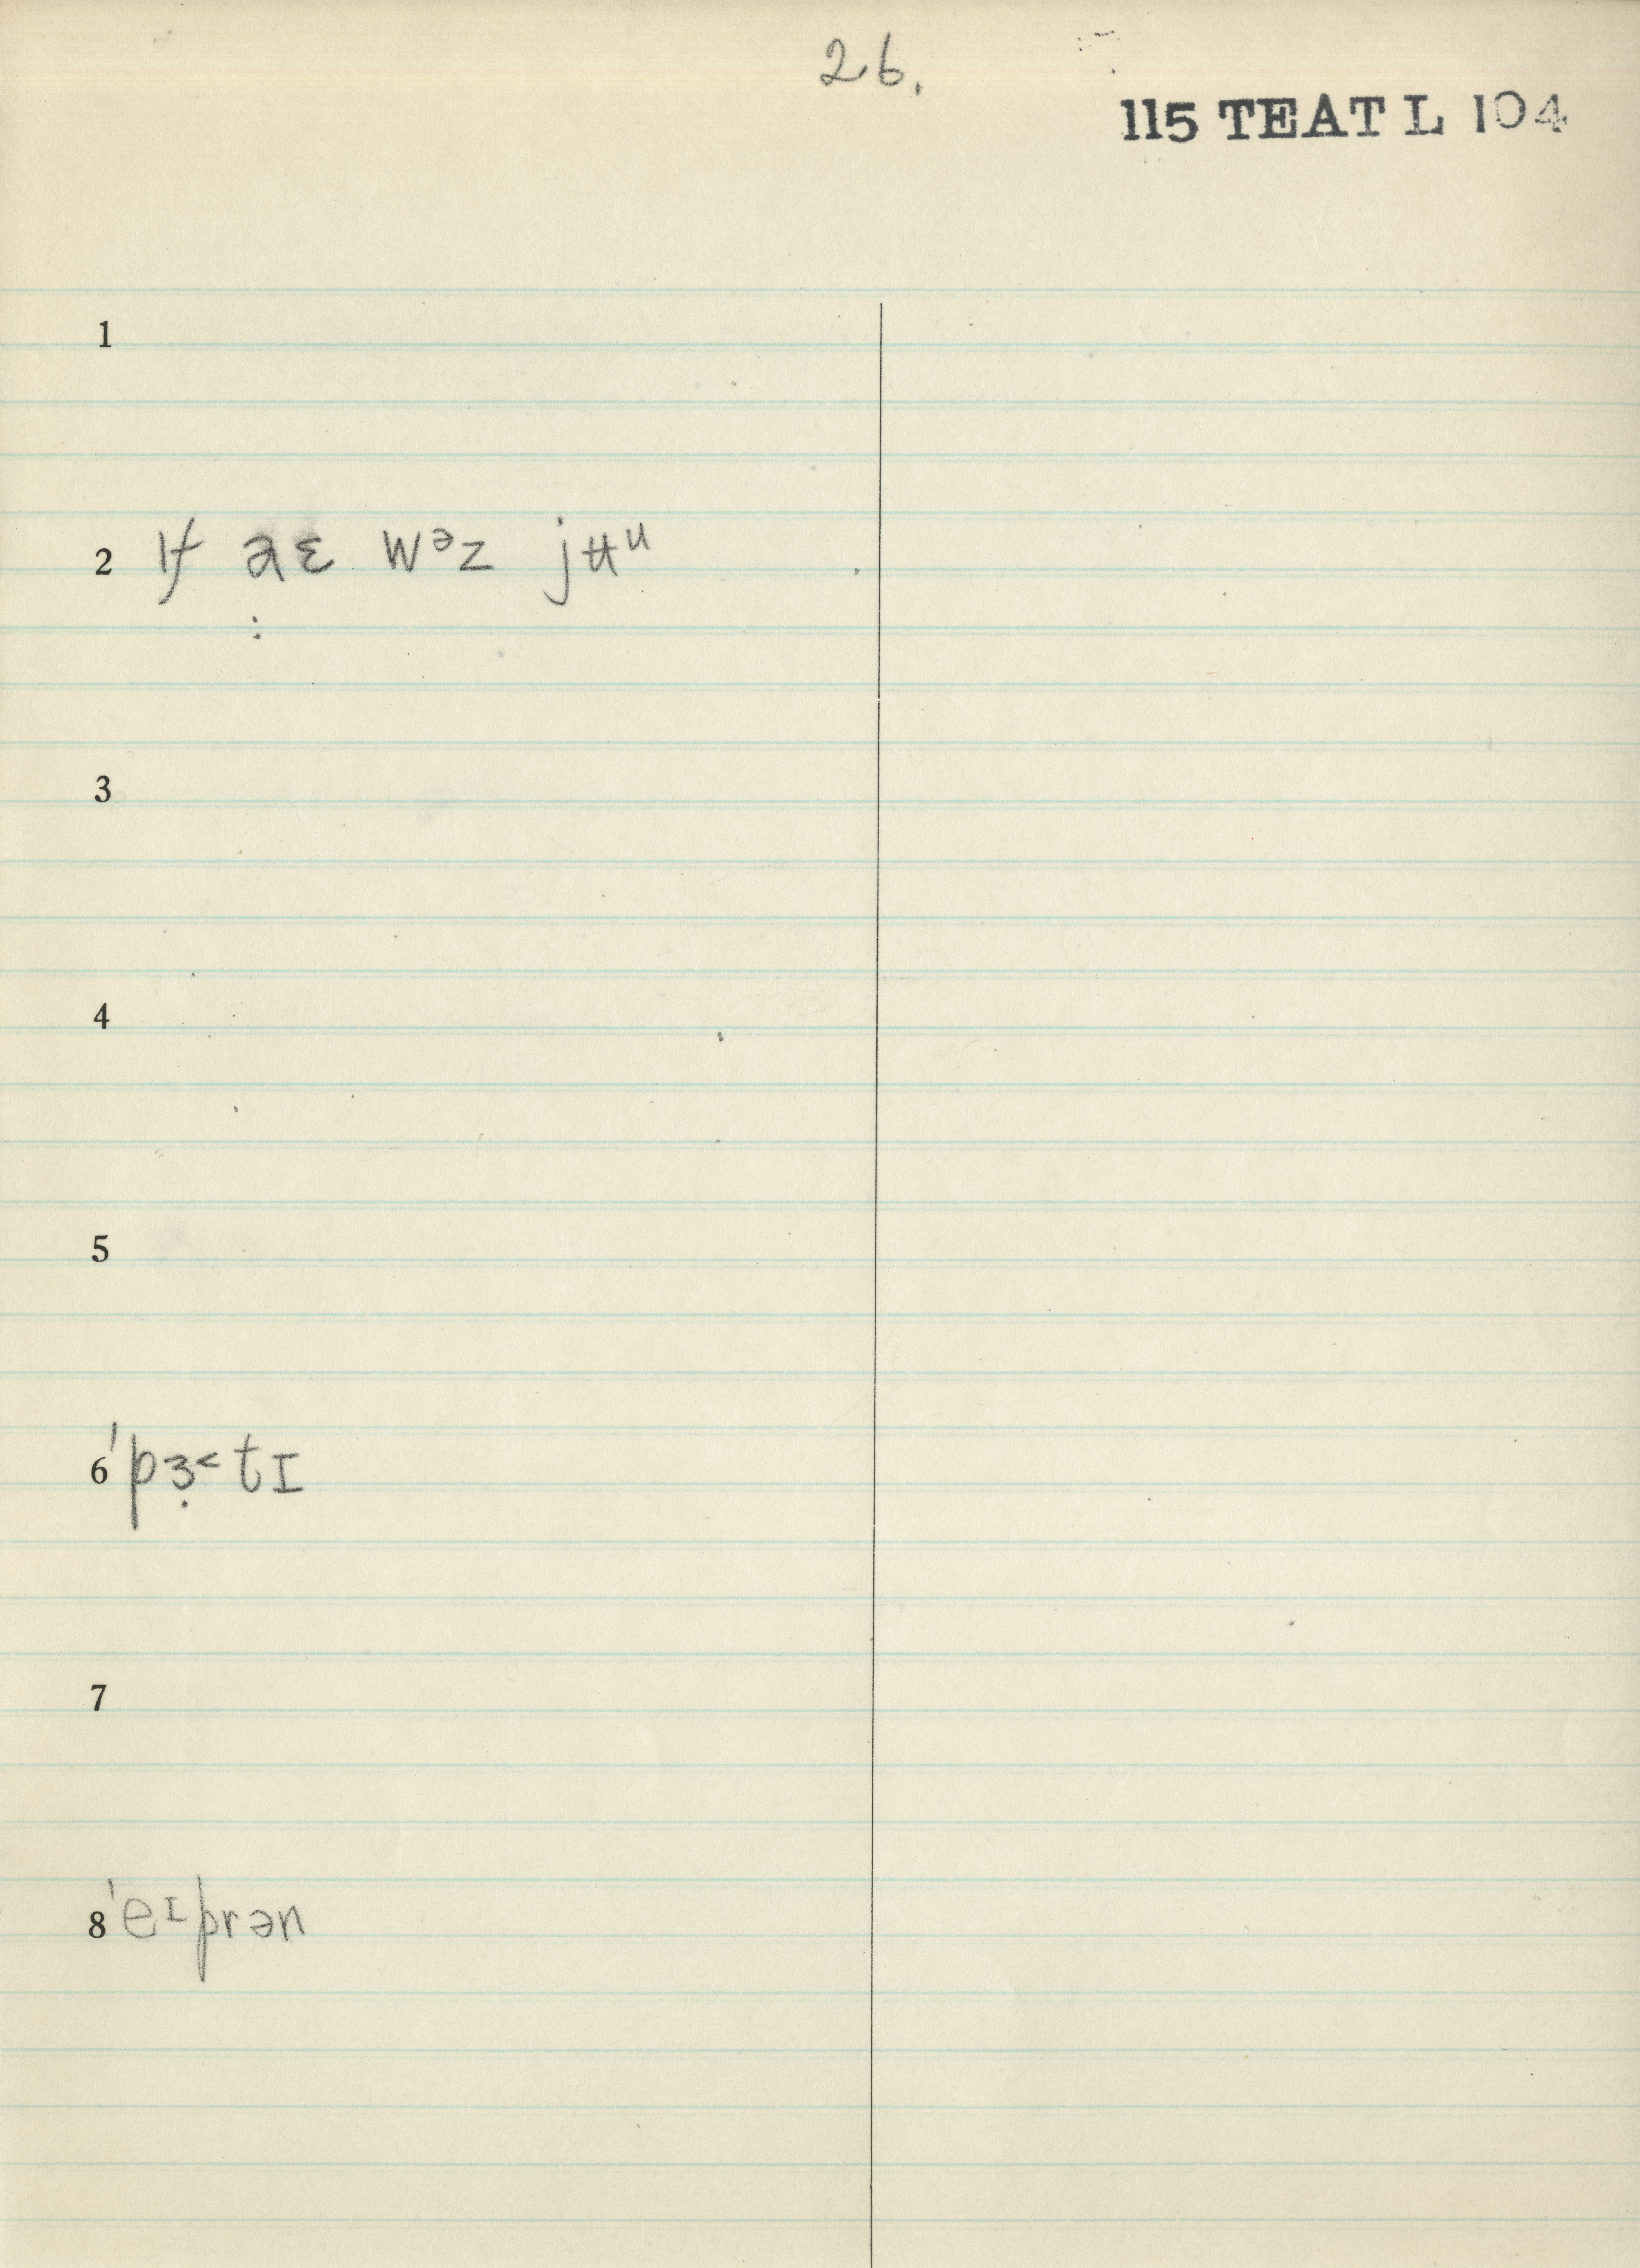 26.
115 TEAT L 104
1
2 ɪf a̤ɛ wᵊz jʉᵘ
3
4
5
6 ˈpɜ̣˂tɪ
7
8 ˈeᶦprən